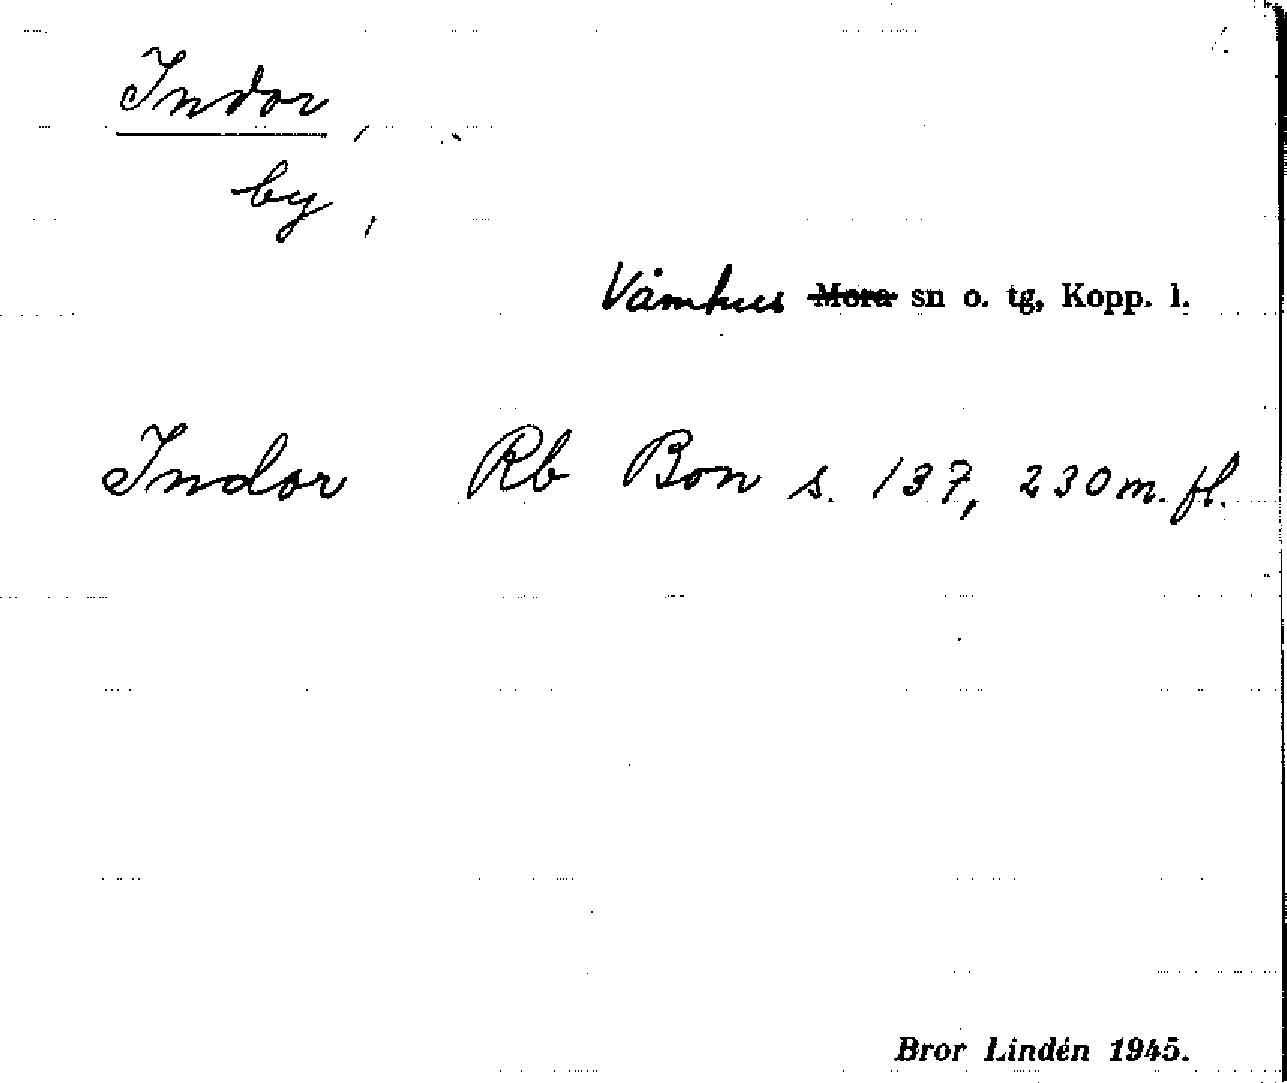 Indor,
by,
Våmhus ~~Mora~~ sn o. tg, Kopp. l.
Indor Rb Bon s. 137, 230 m. fl.
Bror Lindén 1945.